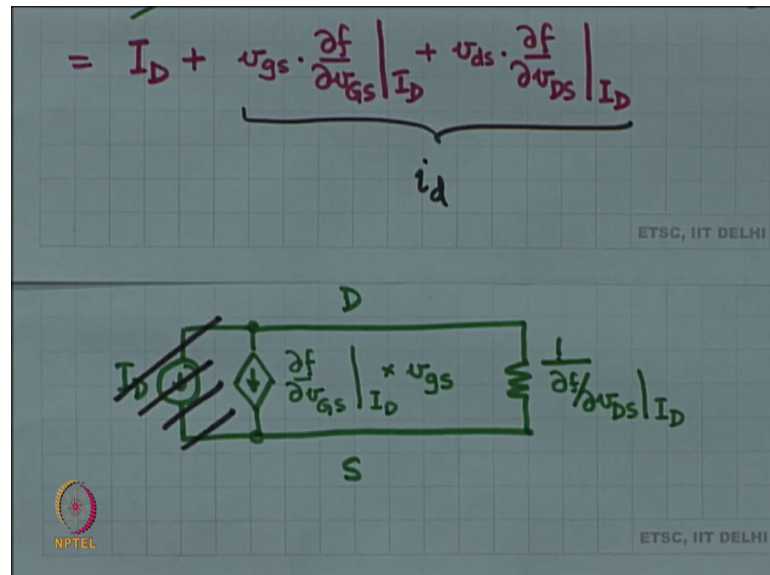 = I_D + v_gs · ∂f/∂v_GS |_I_D + v_ds · ∂f/∂v_DS |_I_D
i_d
ETSC, IIT DELHI
D
I_D ∂f/∂v_GS |_I_D × v_gs 1/∂f/∂v_DS |_I_D
S
NPTEL
ETSC, IIT DELHI